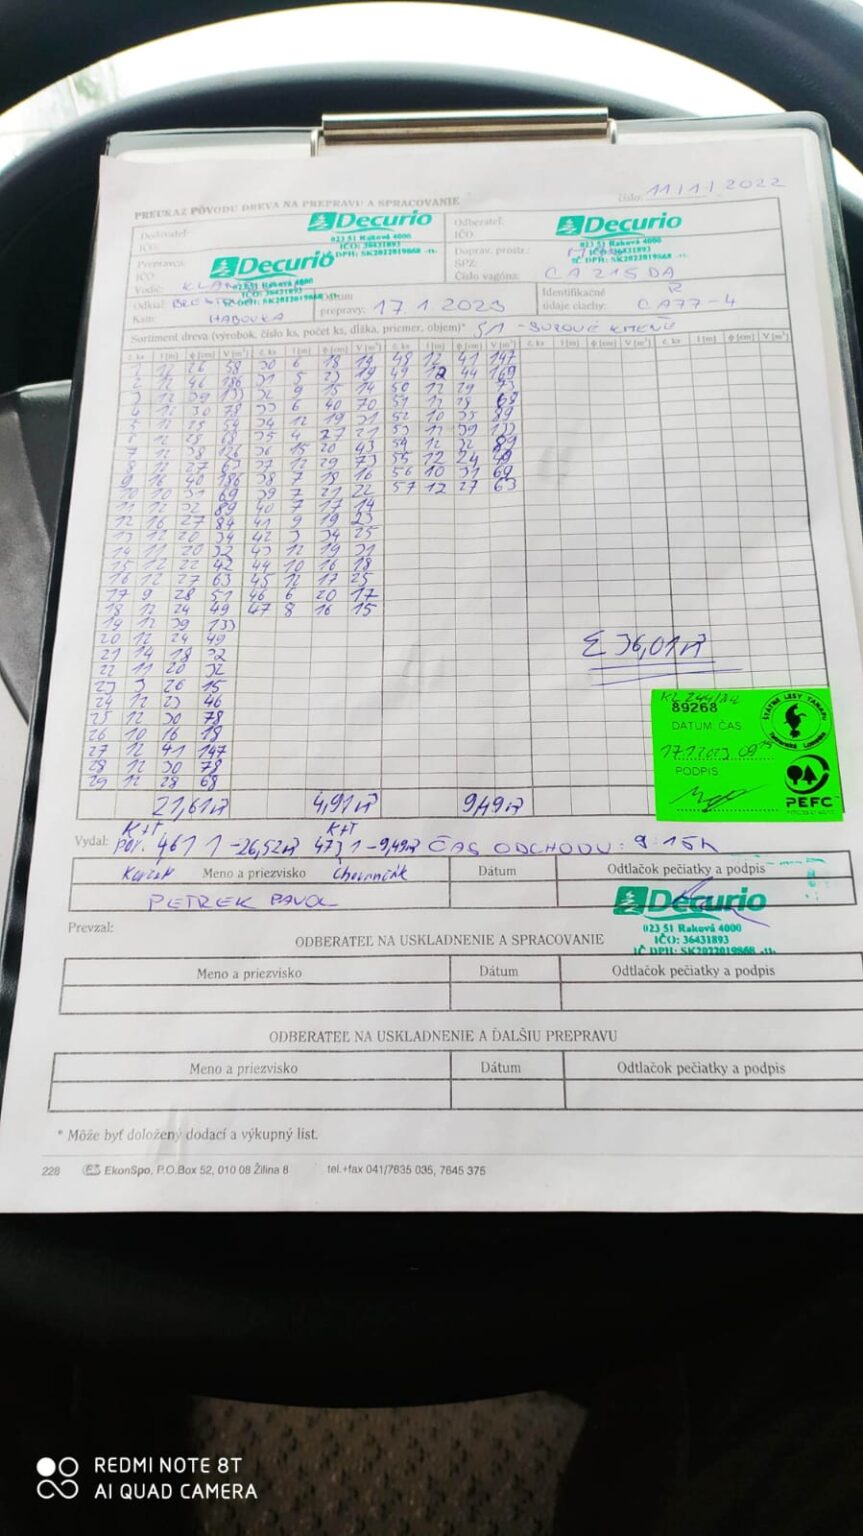 PREUKAZ PÔVODU DREVA NA PREPRAVU A SPRACOVANIE
číslo: 11/1/2022
Dodávateľ:
IČO:
Decurio
023 51 Raková 4000
IČO: 36431893
IČ DPH: SK2022019868
Odberateľ:
IČO
Decurio
023 51 Raková 4000
IČO: 36431893
IČ DPH: SK2022019868
Prepravca:
IČO
Decurio
023 51 Raková 4000
IČO: 36431893
IČ DPH: SK2022019868
Doprav. prostr.:
ŠPZ:
Číslo vagóna: CA 215 DA
Vodič:
Odkiaľ:
Kam: HABOVKA
Dátum
prepravy: 17.1.2023
Identifikačné
údaje ciachy: CA77-4
Sortiment dreva (výrobok, číslo ks, počet ks, dĺžka, priemer, objem)* S1 - SUROVÉ KMENE
č. ks l [m] φ [cm] V [m³] č. ks l [m] φ [cm] V [m³] č. ks l [m] φ [cm] V [m³] č. ks l [m] φ [cm] V [m³] č. ks l [m] φ [cm] V [m³]
1 12 26 58 30 6 18 19 48 12 41 147
2 12 46 186 31 5 23 19 49 12 44 169
3 12 39 133 32 9 15 14 50 12 29 73
4 12 30 78 33 6 40 70 51 12 28 68
5 12 25 54 34 12 19 31 52 10 35 89
6 12 28 68 35 4 27 21 53 12 39 133
7 12 38 126 36 15 20 43 54 12 32 89
8 12 27 63 37 12 29 73 55 12 24 49
9 16 40 186 38 7 18 16 56 10 31 69
10 10 31 69 39 7 21 22 57 12 27 63
11 12 32 89 40 7 17 14
12 16 27 84 41 9 19 23
13 12 20 34 42 3 34 25
14 11 20 32 43 12 19 31
15 12 22 42 44 10 16 18
16 12 27 63 45 12 17 25
17 9 28 51 46 6 20 17
18 12 24 49 47 8 16 15
19 12 39 133
20 12 24 49
21 14 18 32
22 11 20 32
23 3 26 15
24 12 23 46
25 12 30 78
26 10 16 18
27 12 41 147
28 12 30 78
29 12 28 68
Σ 36,01 m³
89268
DATUM ČAS
17.1.2023 09 15
PODPIS
ŠTÁTNE LESY TANAPU
Tatranská Lomnica
PEFC
21,61 m³ 4,91 m³ 9,49 m³
K+T K+T
Vydal: por. 461 1 - 26,52 m³ 473 1 - 9,49 m³ ČAS ODCHODU: 9:15h
Meno a priezvisko Dátum Odtlačok pečiatky a podpis
PETREK PAVOL
Decurio
023 51 Raková 4000
IČO: 36431893
IČ DPH: SK2022019868
Prevzal:
ODBERATEĽ NA USKLADNENIE A SPRACOVANIE
Meno a priezvisko Dátum Odtlačok pečiatky a podpis
ODBERATEĽ NA USKLADNENIE A ĎALŠIU PREPRAVU
Meno a priezvisko Dátum Odtlačok pečiatky a podpis
* Môže byť doložený dodací a výkupný list.
228 EkonSpo, P.O.Box 52, 010 08 Žilina 8 tel.+fax 041/7635 035, 7645 375
REDMI NOTE 8T
AI QUAD CAMERA